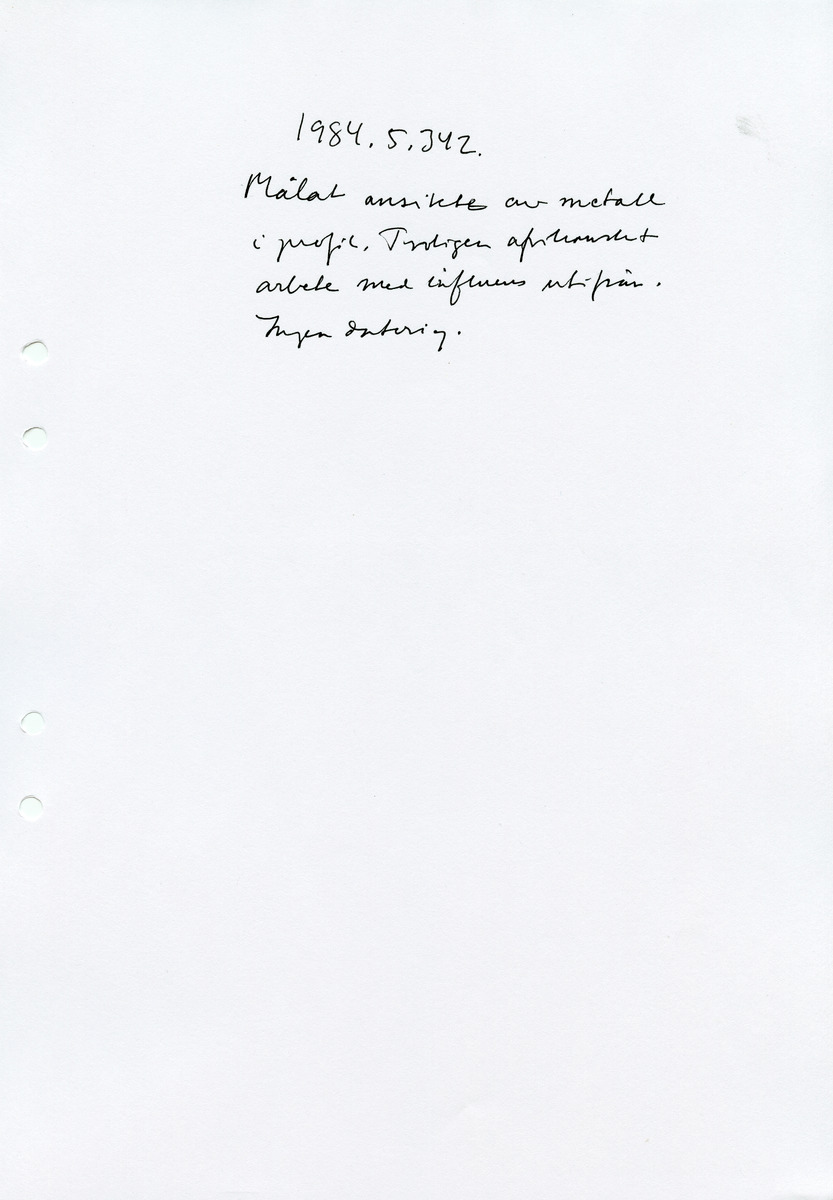 1984.5.342.
Målat ansikte av metall
i profil. Troligen afrikanskt
arbete med influens utifrån.
Ingen datering.